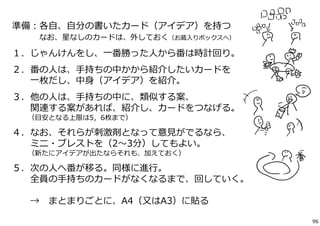 準備：各自、自分の書いたカード（アイデア）を持つ
なお、星なしのカードは、外しておく（お蔵入りボックスへ）
１．じゃんけんをし、一番勝った人から番は時計回り。
２．番の人は、手持ちの中かから紹介したいカードを
一枚だし、中身（アイデア）を紹介。
３．他の人は、手持ちの中に、類似する案、
関連する案があれば、紹介し、カードをつなげる。
（目安となる上限は5，6枚まで）
４．なお、それらが刺激剤となって意見がでるなら、
ミニ・ブレストを（2～3分）してもよい。
（新たにアイデアが出たならそれも、加えておく）
５．次の人へ番が移る。同様に進行。
全員の手持ちのカードがなくなるまで、回していく。
→ まとまりごとに、A4（又はA3）に貼る
96